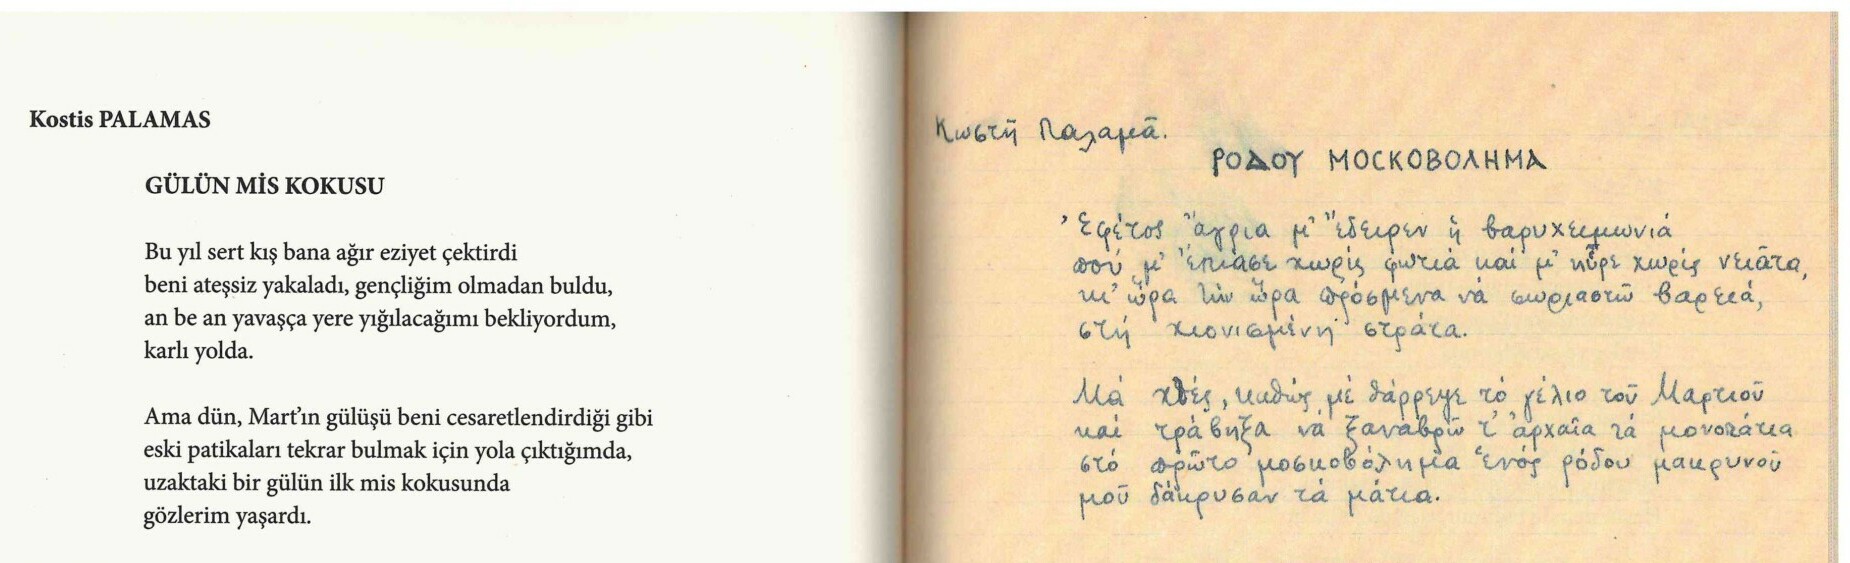 Kostis PALAMAS
GÜLÜN MİS KOKUSU
Bu yıl sert kış bana ağır eziyet çektirdi
beni ateşsiz yakaladı, gençliğim olmadan buldu,
an be an yavaşça yere yığılacağımı bekliyordum,
karlı yolda.
Ama dün, Mart'ın gülüşü beni cesaretlendirdiği gibi
eski patikaları tekrar bulmak için yola çıktığımda,
uzaktaki bir gülün ilk mis kokusunda
gözlerim yaşardı.
Κωστῆ Παλαμᾶ.
ΡΟΔΟΥ ΜΟΣΚΟΒΟΛΗΜΑ
Ἐφέτος ἄγρια μ' ἔδειρεν ἡ βαρυχειμωνιά
πού μ' ἔπιασε χωρίς φωτιά καί μ' ηὗρε χωρίς νειᾶτα,
κι' ὥρα τήν ὥρα πρόσμενα νά σωριαστῶ βαρειά,
στή χιονισμένη στράτα.
Μά χθές, καθώς μέ θάρρεψε τό γέλιο τοῦ Μαρτιοῦ
καί τράβηξα νά ξαναβρῶ τ' ἀρχαῖα τά μονοπάτια
στό πρῶτο μοσκοβόλημα ἑνός ρόδου μακρυνοῦ
μοῦ δάκρυσαν τά μάτια.